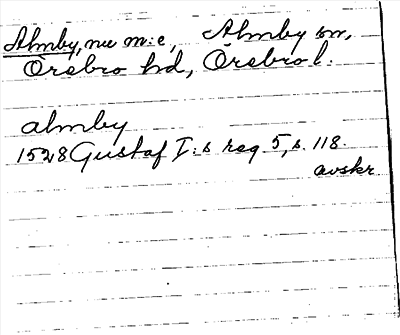 Almby, nu m:e, Almby sn,
Örebro hd, Örebro l.
almby
1528 Gustaf I:s reg. 5, s. 118.
avskr.